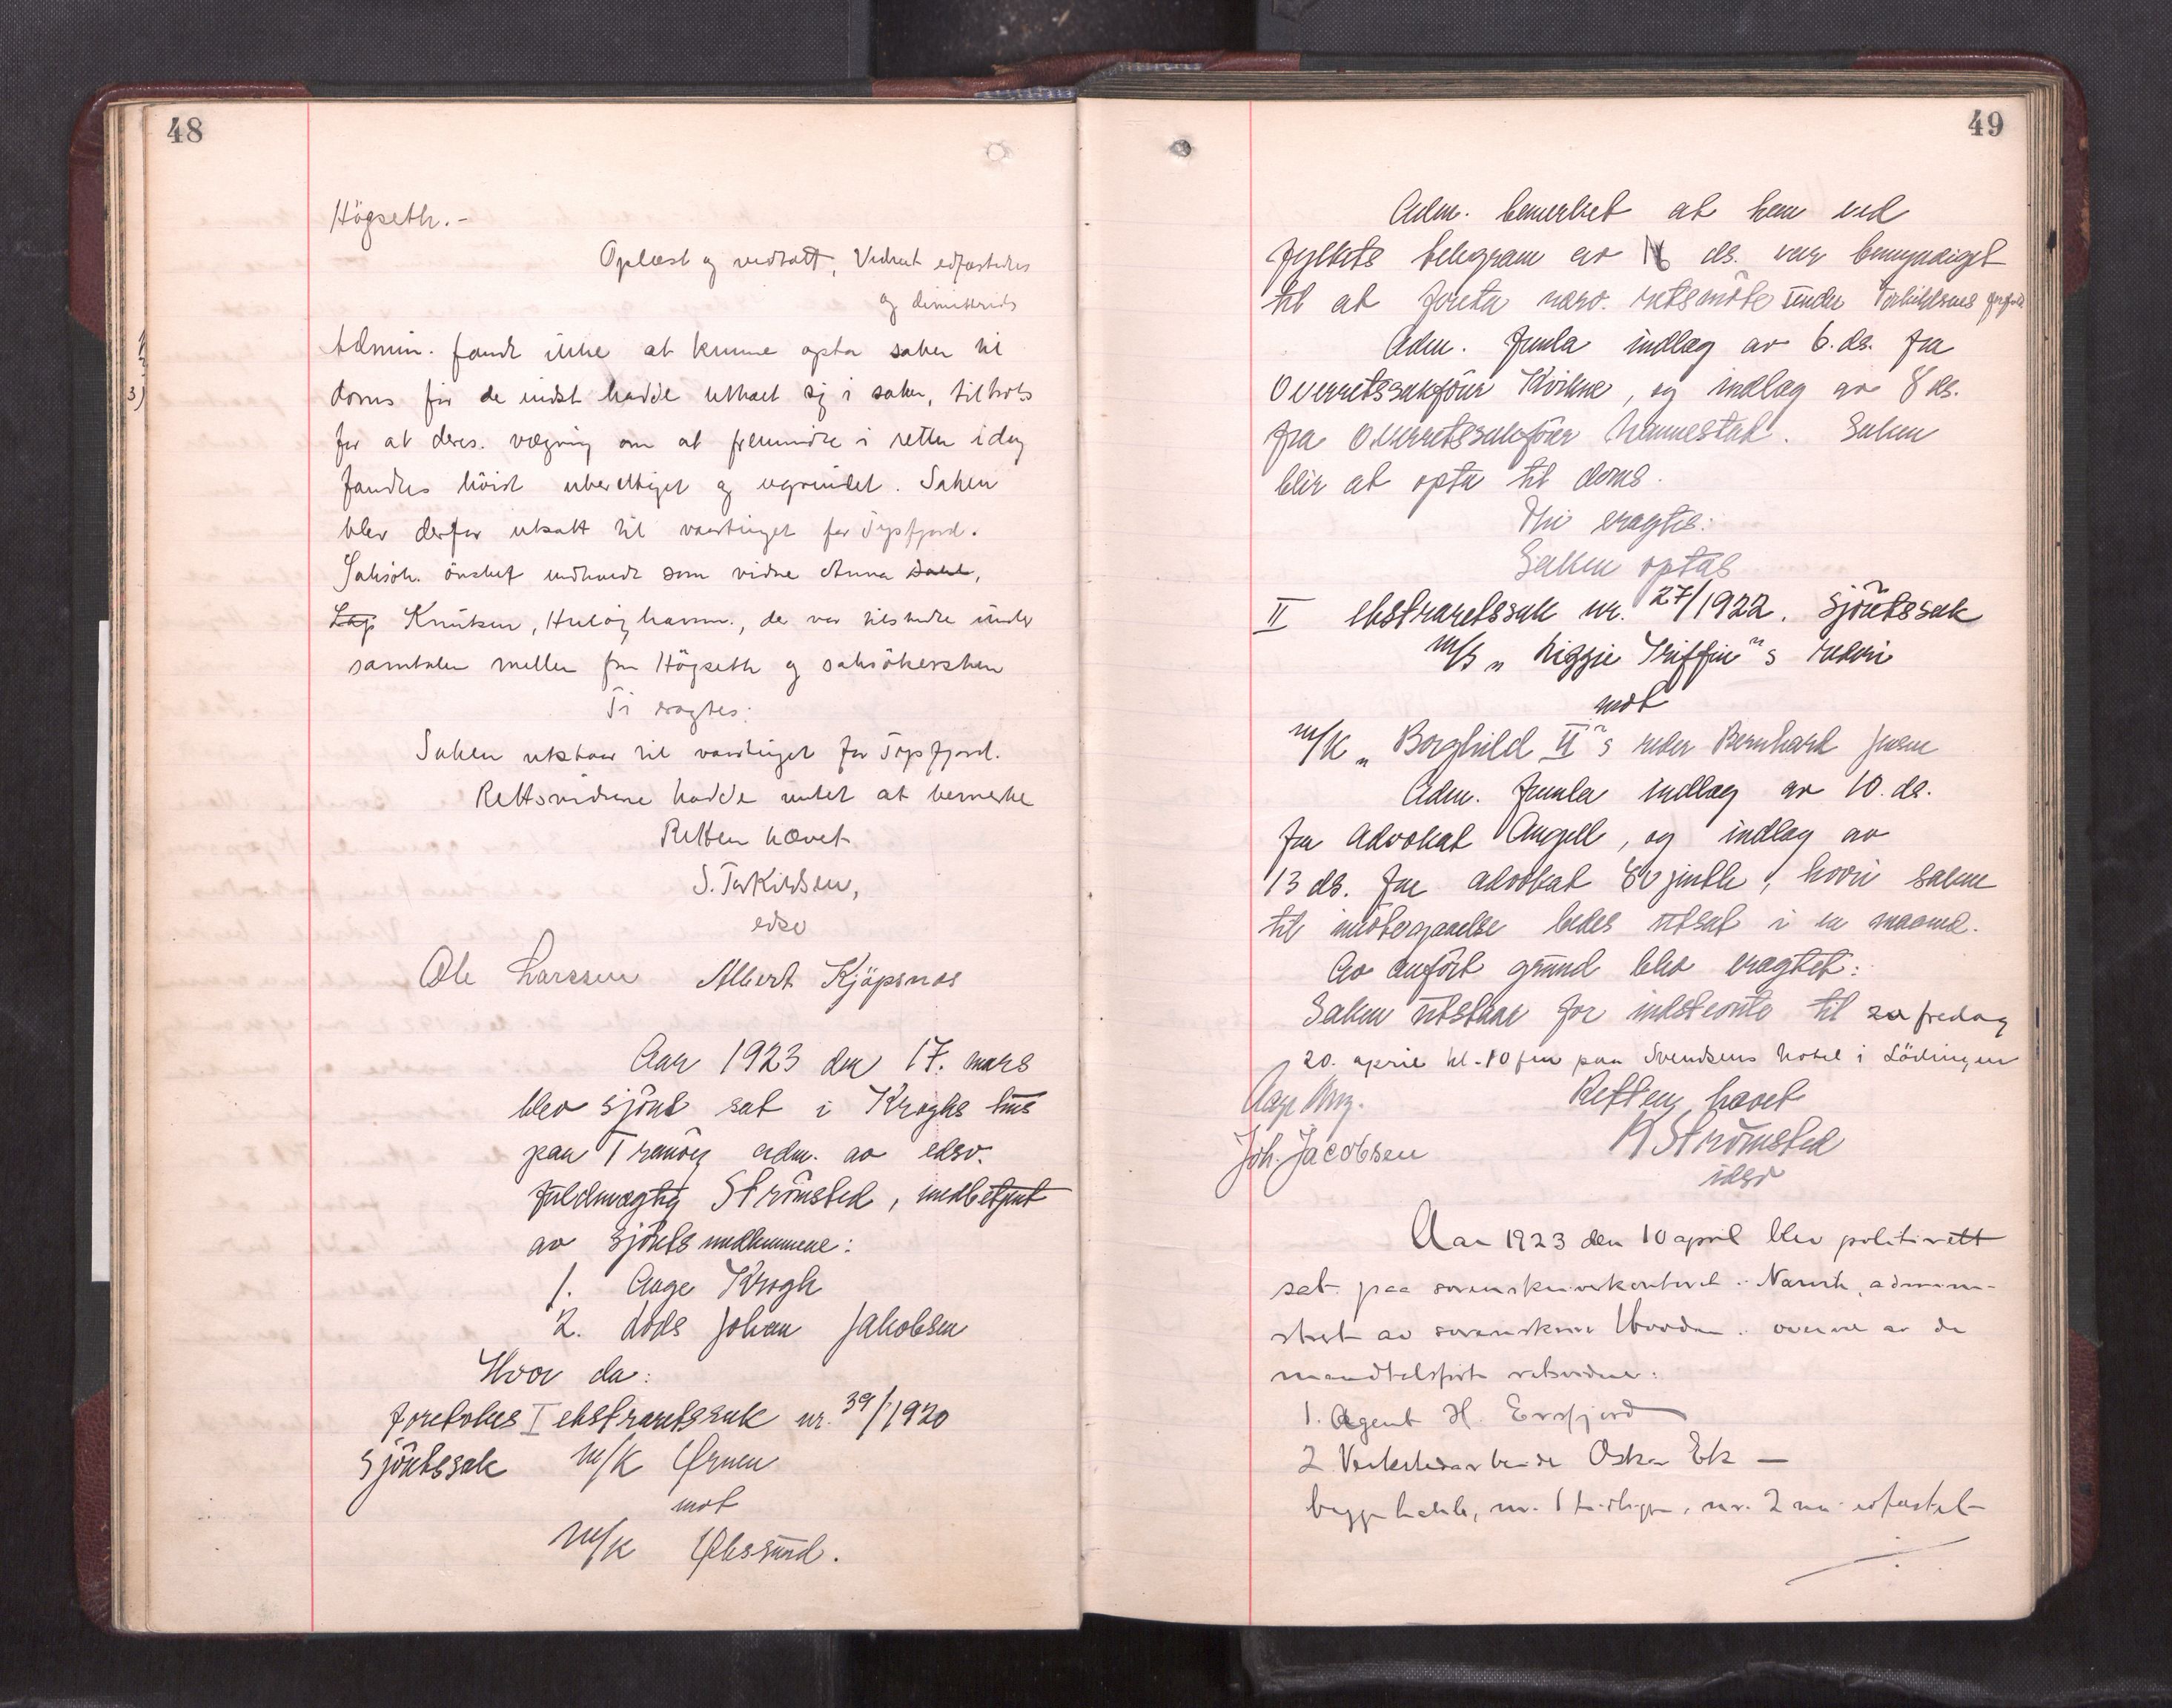 48
Högseth.-
Oplæst og vedtatt, Vidnet edfæstedes
og dimitterides
Admin. fandt ikke at kunne opta saken til
doms før de indst hadde uttalt sig i saken, tiltrods
for at deres. vægring om at fremmøte i retten idag
fandtes höist uberettiget og ugrundet. Saken
blev derfor utsatt til vaartinget for Tysfjord.
Saksök. önsket indkaldt som vidne Anna Dahl,
Knutsen, Hulöyhamn., de var tilstede under
samtalen mellem fru Högseth og saksökersken
Ti eragtes:
Saken utstaar til vaartinget for Tysfjord.
Rettsvidnene hadde intet at bemerke
Retten hævet
S. Terkildsen,
edsv
Ole Larssen Albert Kjöpsnes
Aar 1923 den 17. mars
blev sjöret sat i Kroghs hus
paa Tranöy adm. av edsv.
fuldmægtig Strömsted, medbetjent
av sjöretsmedlemmene:
1. Aage Krogh
2. Lods Johan Jakobsen
Hvor da:
foretokes I ekstraretssak nr. 39/1920
Sjöretssak m/k Ørnen
mot
m/k Økssund.
3)
49
Adm. bemerket at han ved
fylkets telegram av 16 ds. var bemyndiget
til at foreta nærv. retsmöte under Terkildsens
Adm. fremla indlæg av 6. ds. fra
Overretssakförer Kvikne, og indlæg av 8 ds.
fra Overretssakförer Nannestad. Saken
blir at opta til doms.
Thi eragtes:
Saken optas
II ekstraretssak nr. 27/1922. Sjöretssak
m/s „ Griffin"s rederi
mot
m/k „ Borghild II"s reder Bernhard Jensen
Adm. fremla indlæg av 10. ds.
fra Advokat Angell, og indlæg av
13 ds. fra advokat, hvori saken
til imötegaaelse bedes utsat i en maaned.
Av anfört grund blev eragtet:
Saken utstaar for indstevnte til fredag
20. april kl. 10 fm paa Svendsens hotel i Lödingen
Retten hævet
Joh. Jacobsen K Strömsted
edsv
Aar 1923 den 10 april blev politirett
sat paa sorenskriverkontoret i Narvik, admini-
stret av sorenskriver overvær av de
mandtalsførte retsvidner:
1. Agent H. Evsfjord
2 Verkstedsarbeider Oskar Ek —
begge hadde, nr. 1 tidligere, nr. 2 nu edfæstet